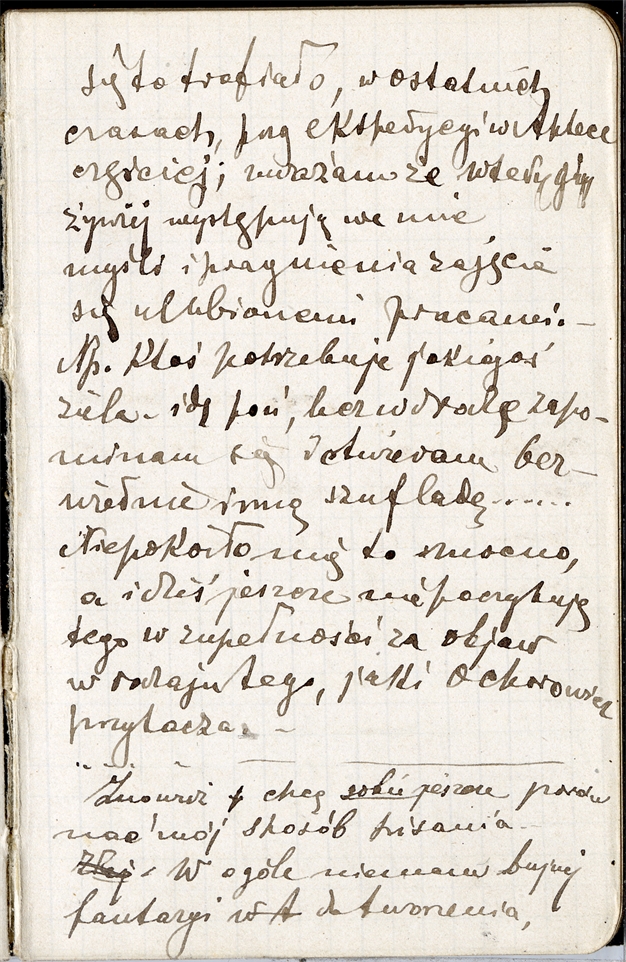 się to trafiało, w ostatnich
czasach, przy ekspedycyi w Aptece
częściej; uważam że wtedy gdy
żywiej występują we mnie
myśli i pragnienia zajęcia
się ulubionemi pracami. –
Np. Ktoś potrzebuje jakiegoś
ziela. idę poń, bezwiednie zapo-
minam się i otwieram bez-
wiednie inną szufladę.....
Niepokoiło mię to mocno,
a i dziś jeszcze nie poczytuję
tego w zupełności za objaw
w rodzaju tego, jaki Ochorowicz
przytacza. –
Znowuż chcę sobie jeszcze porów
nać mój sposób pisania –
W ogóle niemam bujnej
fantazyi do tworzenia,